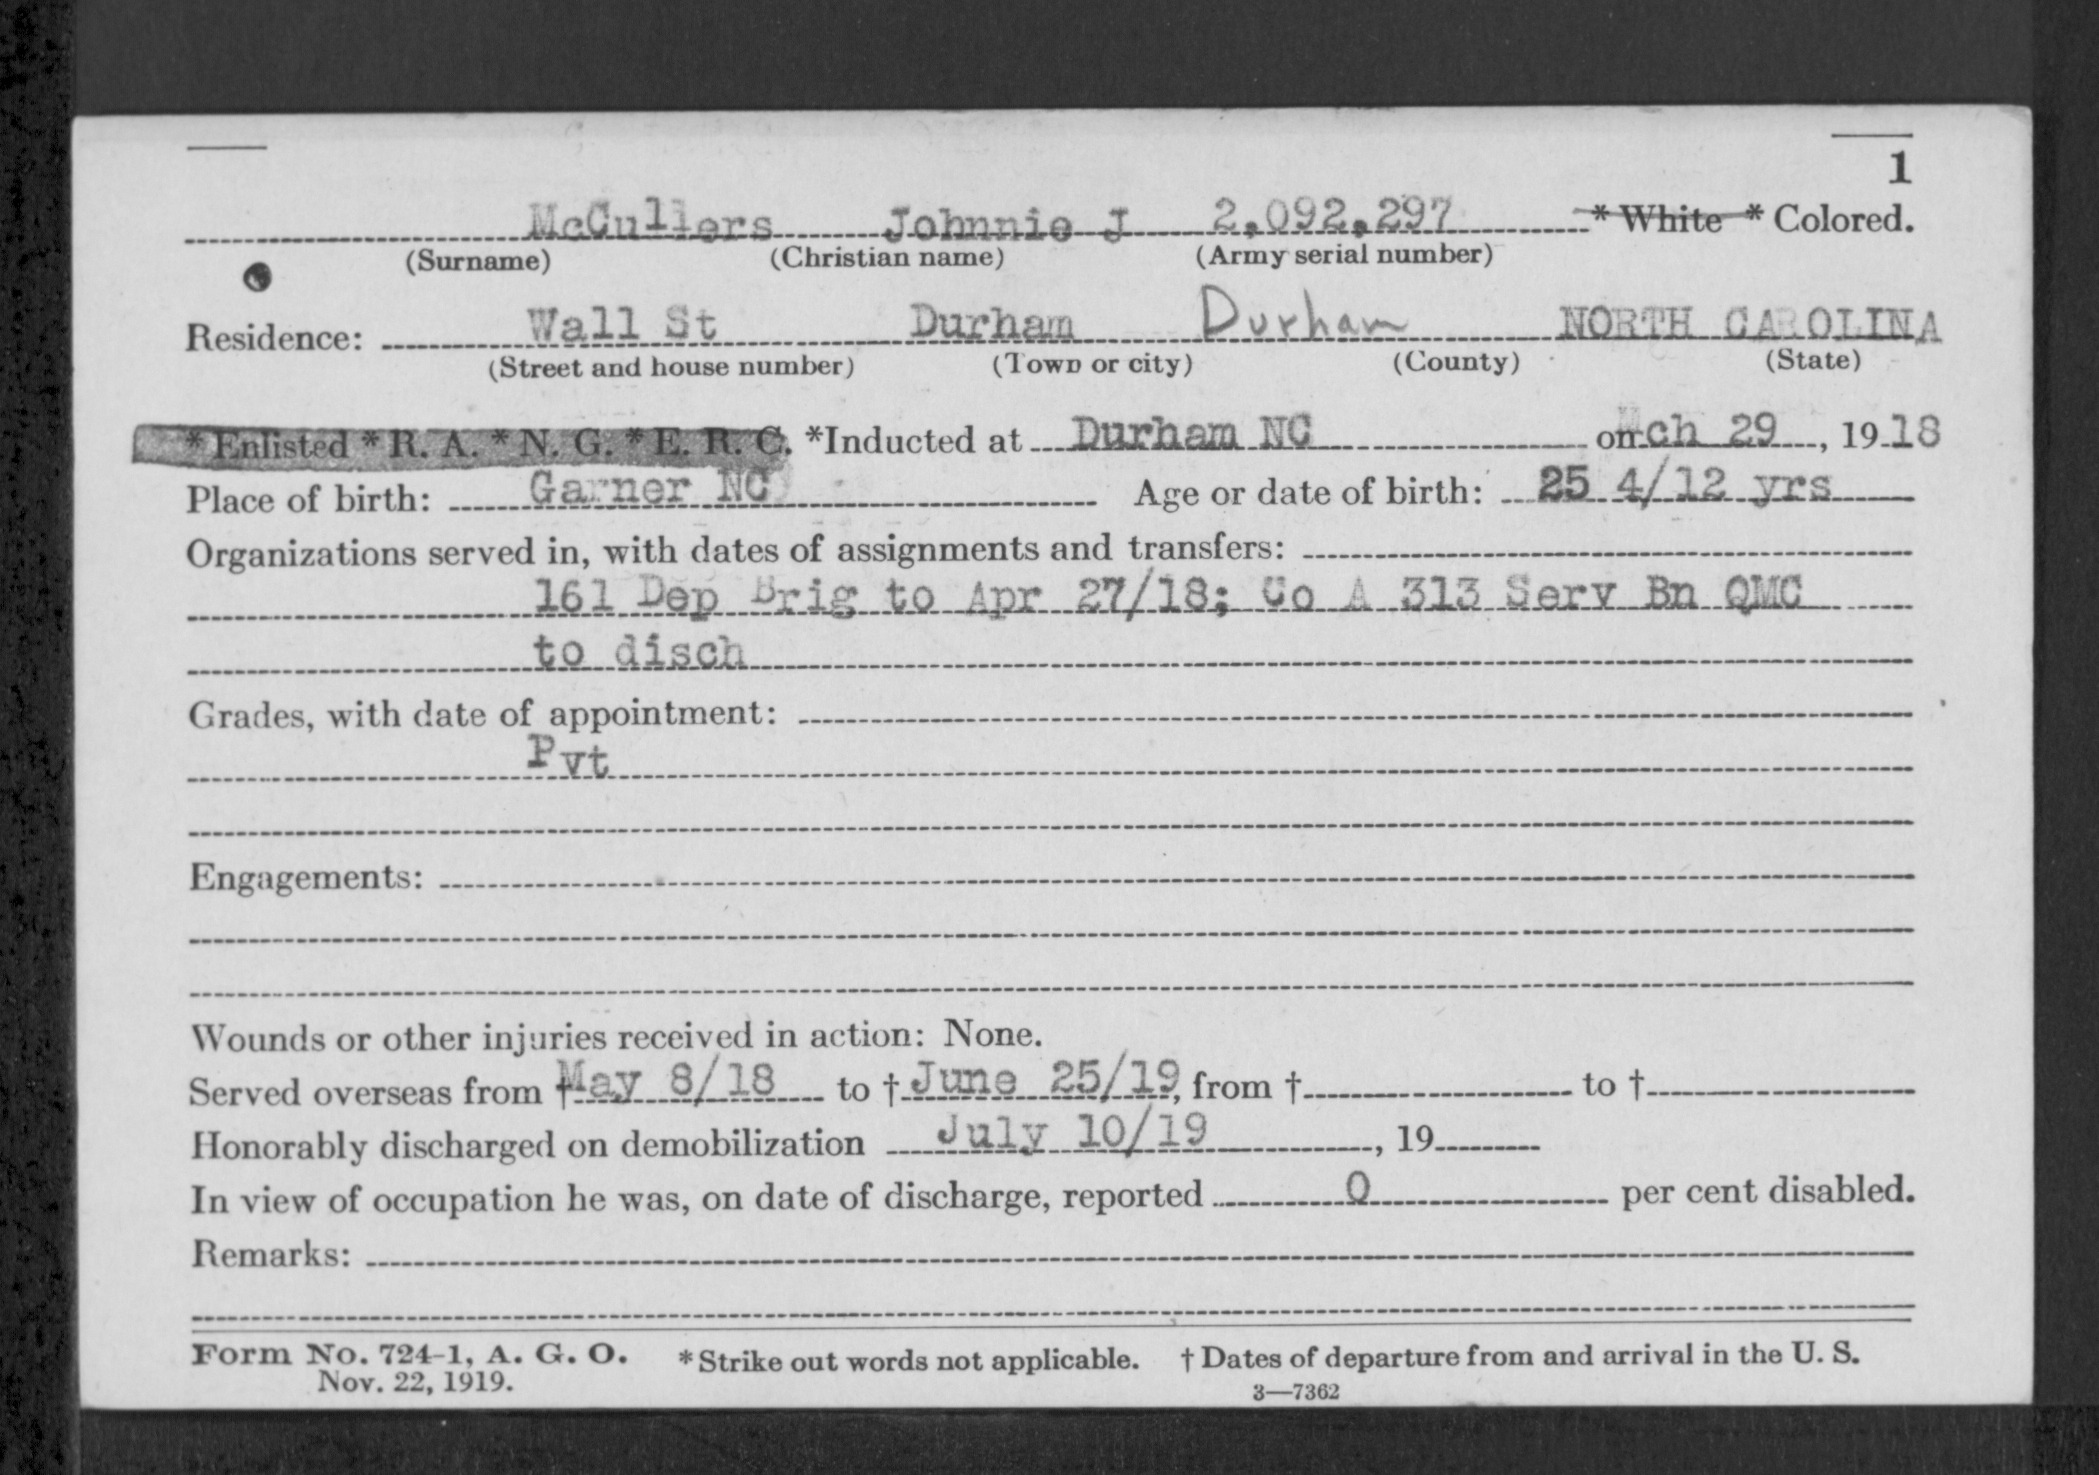 1
McCullers Johnnie J 2,092,297 * White * Colored.
(Surname) (Christian name) (Army serial number)
Residence: Wall St Durham Durham NORTH CAROLINA
(Street and house number) (Town or city) (County) (State)
* Enlisted * R. A. * N. G. * E. R. C. *Inducted at Durham NC on Mch 29, 1918
Place of birth: Garner NC Age or date of birth: 25 4/12 yrs
Organizations served in, with dates of assignments and transfers:
161 Dep Brig to Apr 27/18; Co A 313 Serv Bn QMC
to disch
Grades, with date of appointment:
Pvt
Engagements:
Wounds or other injuries received in action: None.
Served overseas from † May 8/18 to † June 25/19, from † to †
Honorably discharged on demobilization July 10/19, 19
In view of occupation he was, on date of discharge, reported 0 per cent disabled.
Remarks:
Form No. 724-1, A. G. O. * Strike out words not applicable. † Dates of departure from and arrival in the U. S.
Nov. 22, 1919. 3—7362